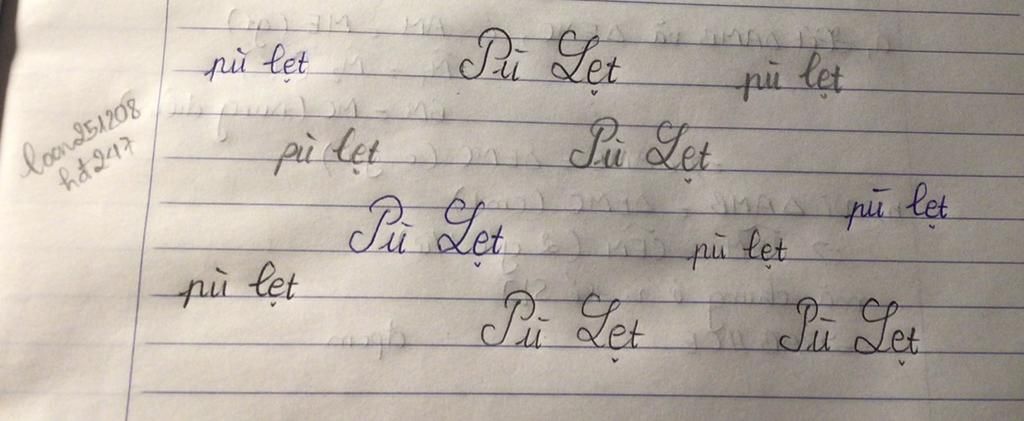 pù lẹt Pù Lẹt pù lẹt
loan251208
hđ247
pù lẹt Pù Lẹt
pù lẹt
Pù Lẹt pù lẹt
pù lẹt
Pù Lẹt Pù Lẹt